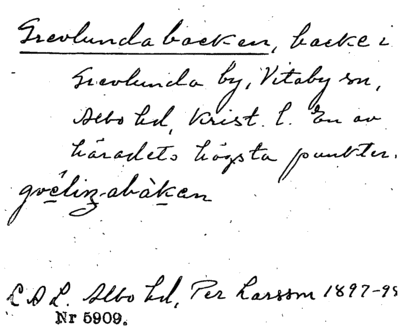 Grevlundabacken, backe i
Grevlunda by, Vitaby sn,
Albo hd, Krist. l. En av
häradets högsta punkter.
gvêlinzabàkan
L A L. Albo hd, Per Larsson 1897-98
Nr 5909.